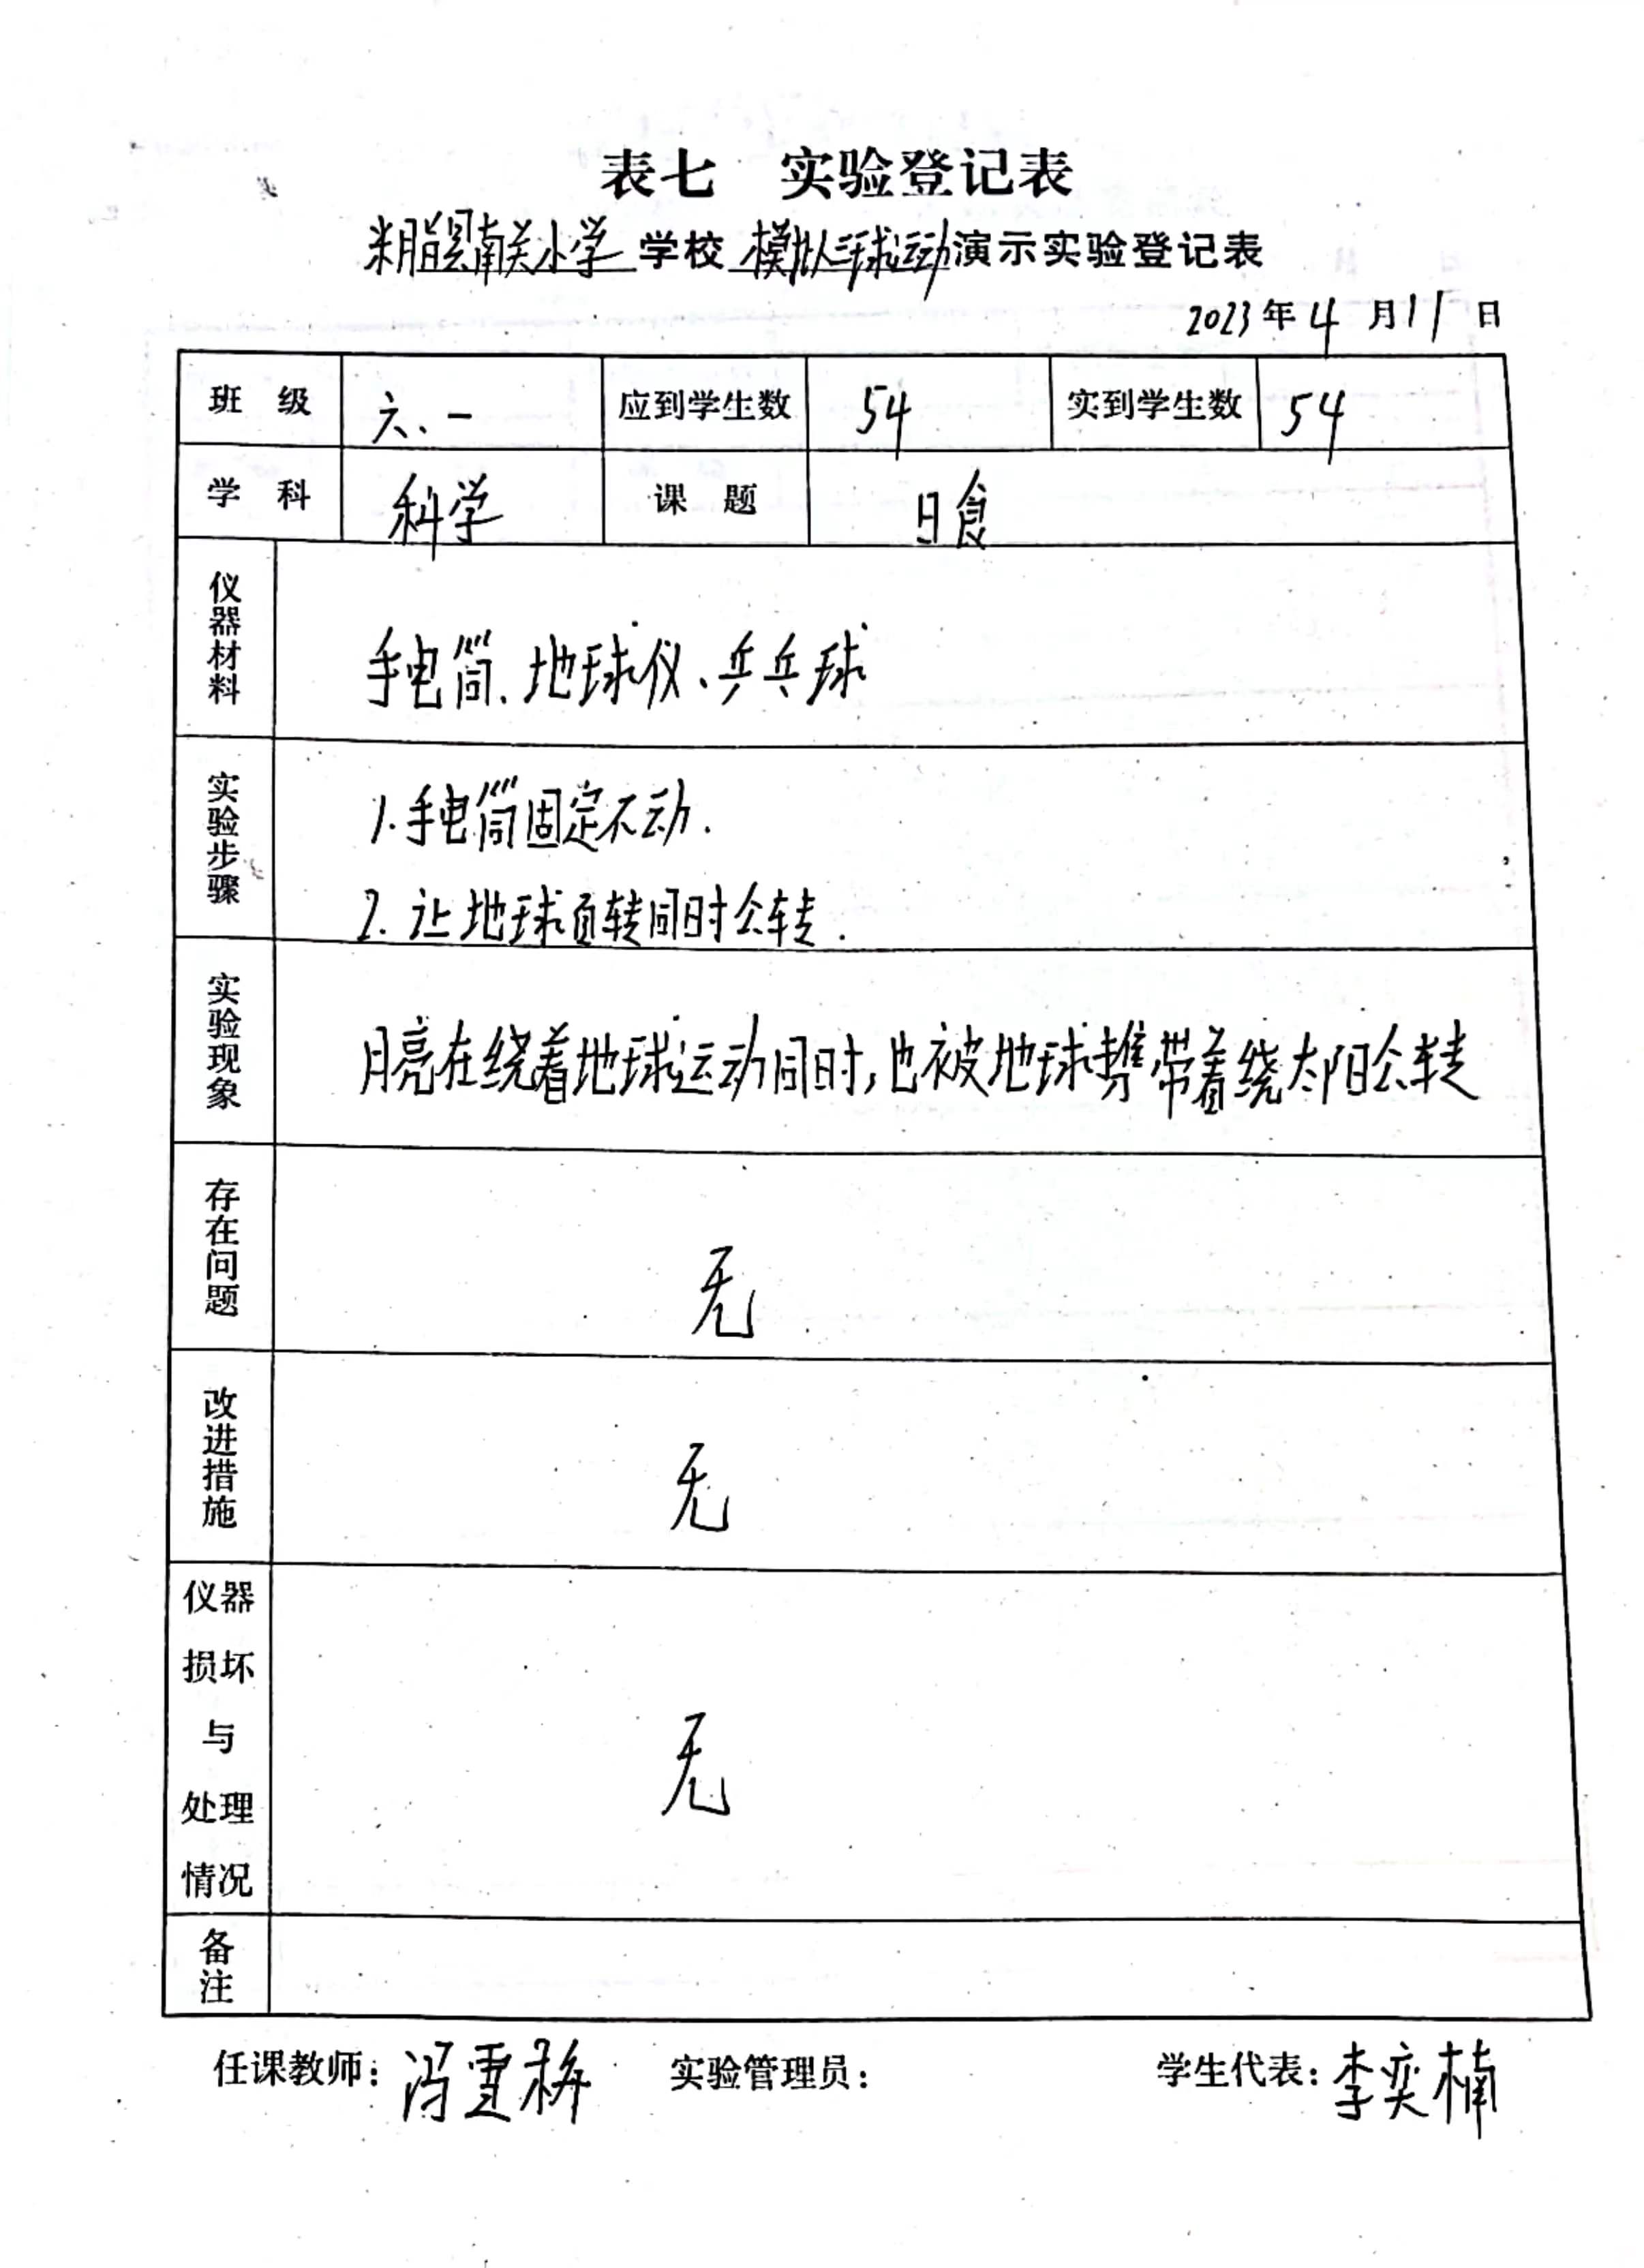 表七 实验登记表
米脂县南关小学学校 模拟三球运动演示实验登记表
2023年4月11日
班级 六、一 应到学生数 54 实到学生数 54
学科 科学 课题 日食
仪器材料 手电筒、地球仪、乒乓球
实验步骤 1.手电筒固定不动.
2.让地球自转同时公转.
实验现象 月亮在绕着地球运动同时,也被地球携带着绕太阳公转
存在问题 无
改进措施 无
仪器
损坏
与
处理
情况
无
备注
任课教师: 冯 实验管理员: 学生代表:李奕楠